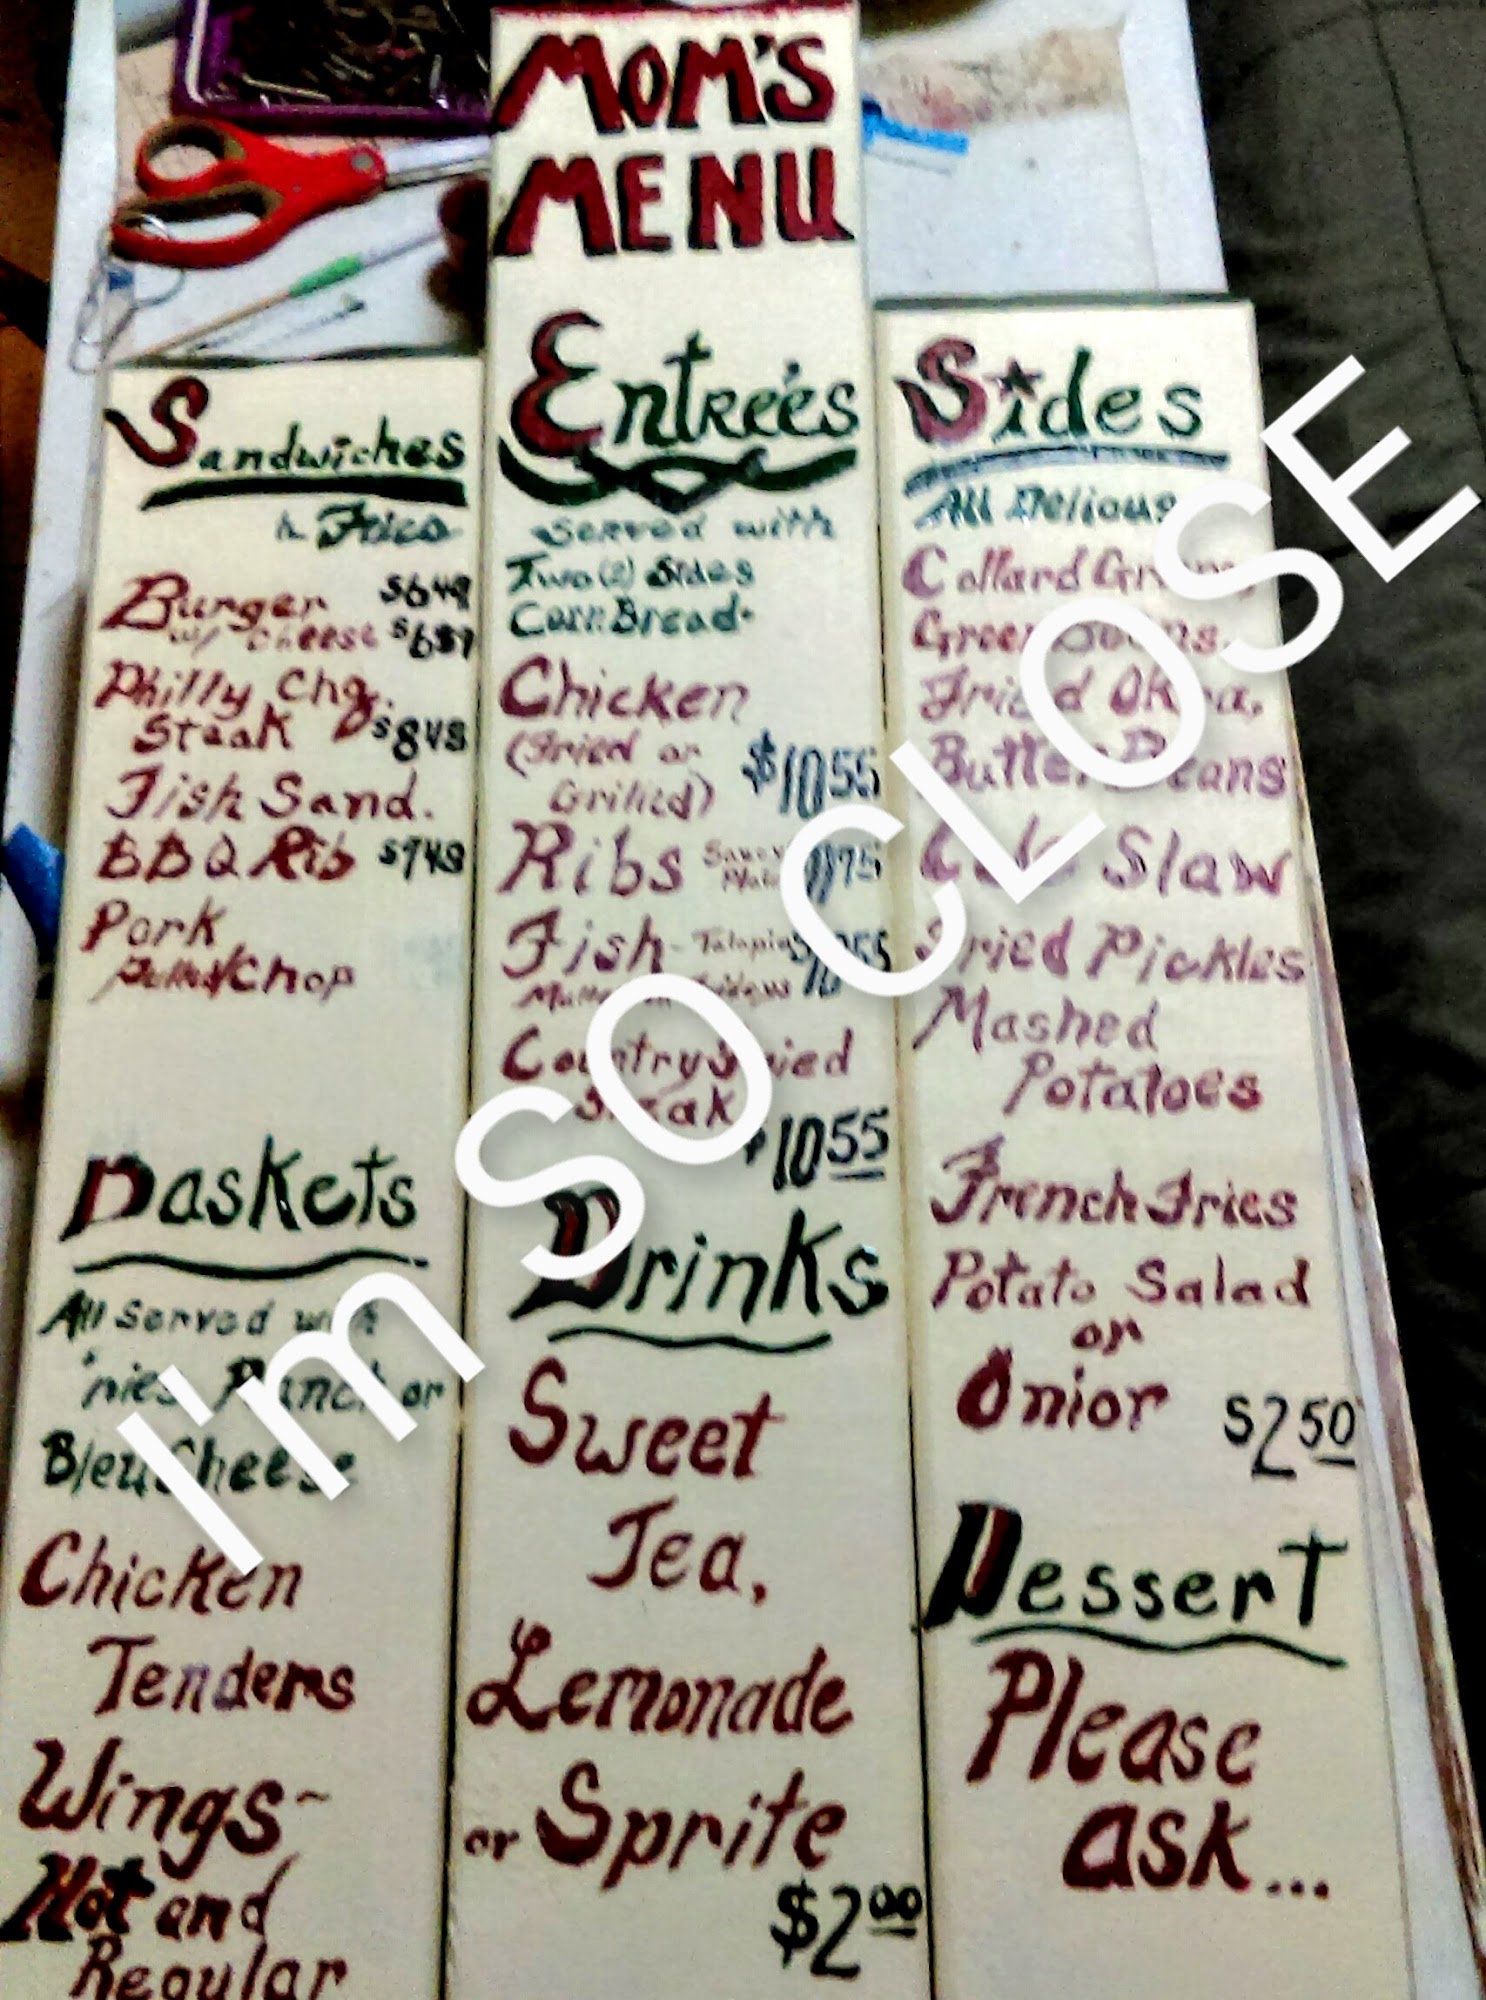 MOM'S
MENU
Sandwiches
Fries
Burger $6.49
w/ cheese $6.89
Philly Chz.
Steak $8.49
Fish Sand.
BBQ Rib $7.49
Pork
Pulled/Chop
Baskets
All Served with
Fries Ranch or
Bleu Cheese
Chicken
Tenders
Wings~
Hot and
Regular
Entreé's
Served with
Two (2) Sides
Corn Bread
Chicken
(Fried or
Grilled) $10.55
Ribs
Fish - Talapia
Country Fried
Steak
$10.55
Drinks
Sweet
Tea,
Lemonade
or Sprite
$2.00
Sides
All Delious
Collard Greens,
Green Beans,
Fried Okra,
Butter Beans
Cole Slaw
Fried Pickles
Mashed
Potatoes
French Fries
Potato Salad
or
Onior $2.50
Dessert
Please
ask...
I'm SO CLOSE